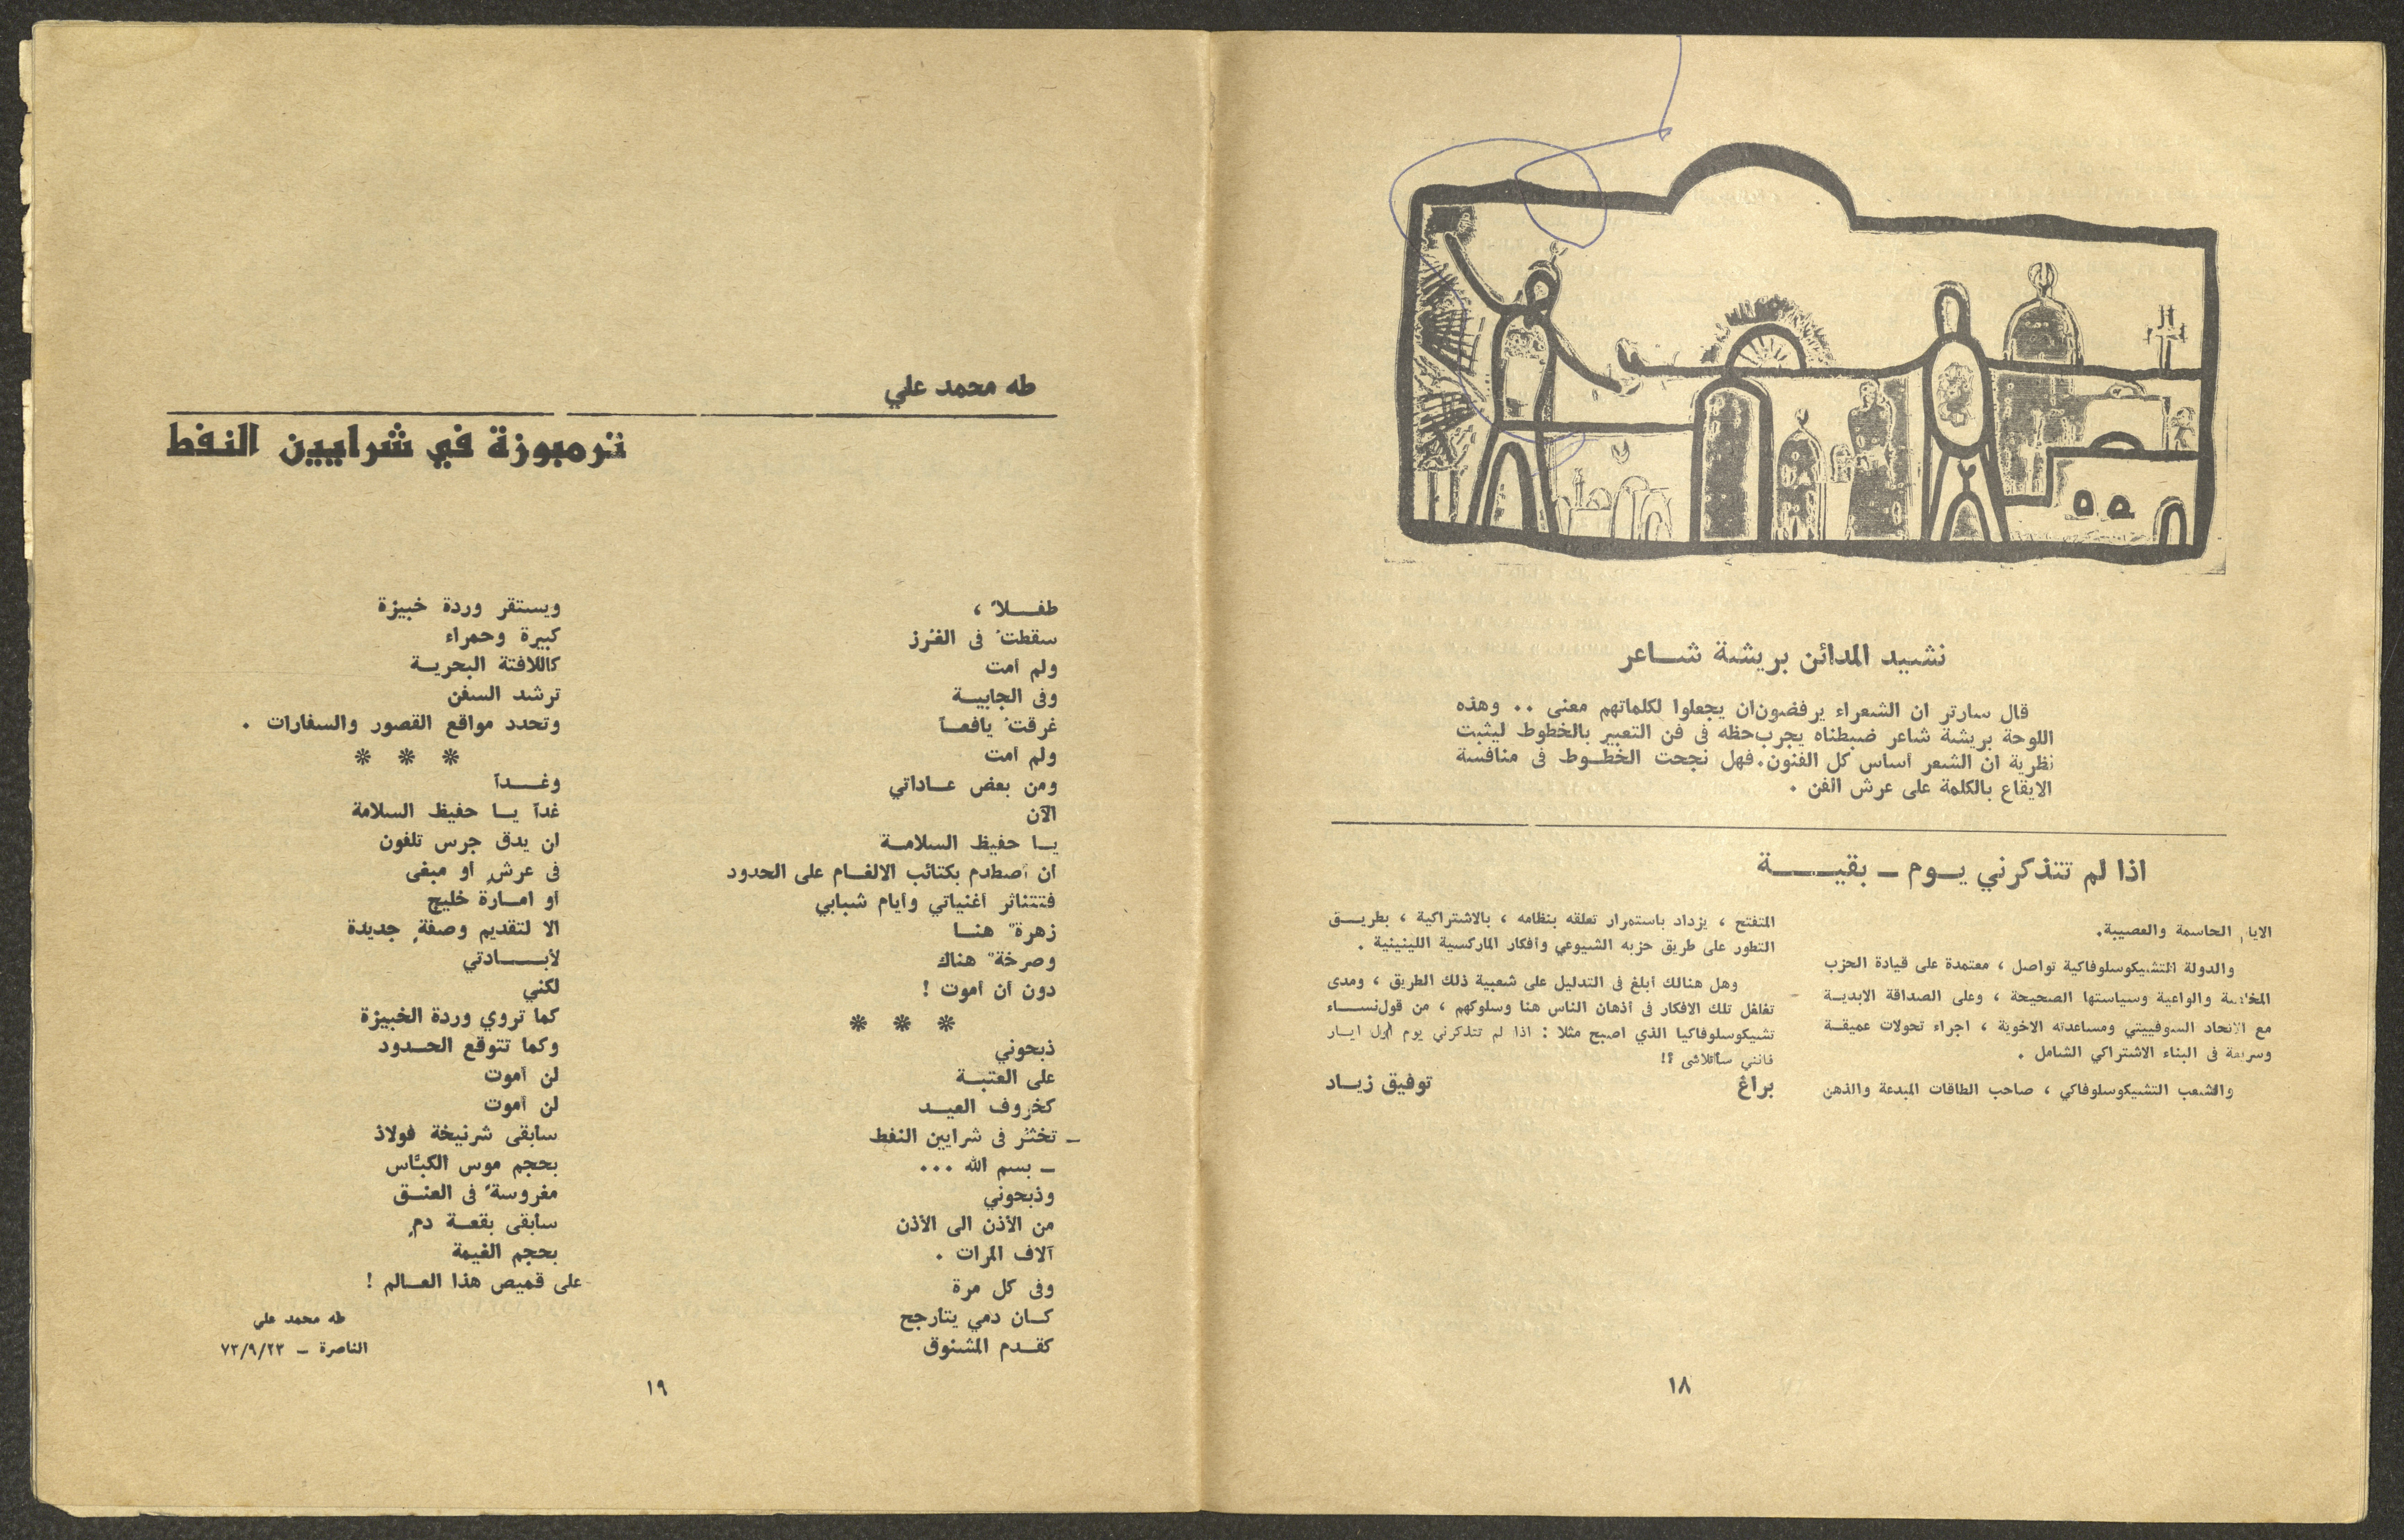 نشيد المدائن بريشة شاعر
قال سارتر ان الشعراء يرفضون ان يجعلوا لكلماتهم معنى .. وهذه
اللوحة بريشة شاعر ضبطناه يجرب حظه في فن التعبير بالخطوط ليثبت
نظرية ان الشعر أساس كل الفنون. فهل نجحت الخطوط في منافسة
الايقاع بالكلمة على عرش الفن .
اذا لم تتذكرني يوم – بقية
الايام الحاسمة والعصيبة.
والدولة التشيكوسلوفاكية تواصل ، معتمدة على قيادة الحزب
والواعية وسياستها الصحيحة ، وعلى الصداقة الابدية
مع الاتحاد السوفييتي ومساعدته الاخوية ، اجراء تحولات عميقة
وسريعة في البناء الاشتراكي الشامل .
والشعب التشيكوسلوفاكي ، صاحب الطاقات المبدعة والذهن
المتفتح ، يزداد باستمرار تعلقه بنظامه ، بالاشتراكية ، بطريق
التطور على طريق حزبه الشيوعي وأفكار الماركسية اللينينية .
وهل هنالك أبلغ في التدليل على شعبية ذلك الطريق ، ومدى
تغلغل تلك الافكار في أذهان الناس هنا وسلوكهم ، من قول نساء
تشيكوسلوفاكيا الذي اصبح مثلا : اذا لم تتذكرني يوم أول ايار
فانني سأتلاشى ؟!
براغ
توفيق زياد
١٨
طه محمد علي
ترمبوزة في شرايين النفط
طفلاً ،
سقطتُ في الفُرز
ولم أمت
وفي الجابية
غرقتُ يافعاً
ولم أمت
ومن بعض عاداتي
الآن
يا حفيظ السلامة
أن أصطدم بكتائب الالغام على الحدود
فتتناثر أغنياتي وأيام شبابي
زهرةً هنا
وصرخةً هناك
دون أن أموت !
* * *
ذبحوني
على العتبة
كخروف العيد
– تخثّر في شرايين النفط
– بسم الله ...
وذبحوني
من الأذن الى الأذن
آلاف المرات .
وفي كل مرة
كان دمي يتأرجح
كقدم المشنوق
ويستقر وردة خبيزة
كبيرة وحمراء
كاللافتة البحرية
ترشد السفن
وتحدد مواقع القصور والسفارات .
* * *
وغداً
غداً يا حفيظ السلامة
ان يدق جرس تلفون
في عرشٍ أو مبغى
أو امارة خليج
الا لتقديم وصفةٍ جديدة
لأبادتي
لكني
كما تروي وردة الخبيزة
وكما تتوقع الحدود
لن أموت
لن أموت
سأبقى شرنيخة فولاذ
بحجم موس الكبّاس
مغروسةً في العنق
سأبقى بقعة دمٍ
بحجم الغيمة
على قميص هذا العالم !
طه محمد علي
الناصرة – ٧٣/٩/٢٣
١٩